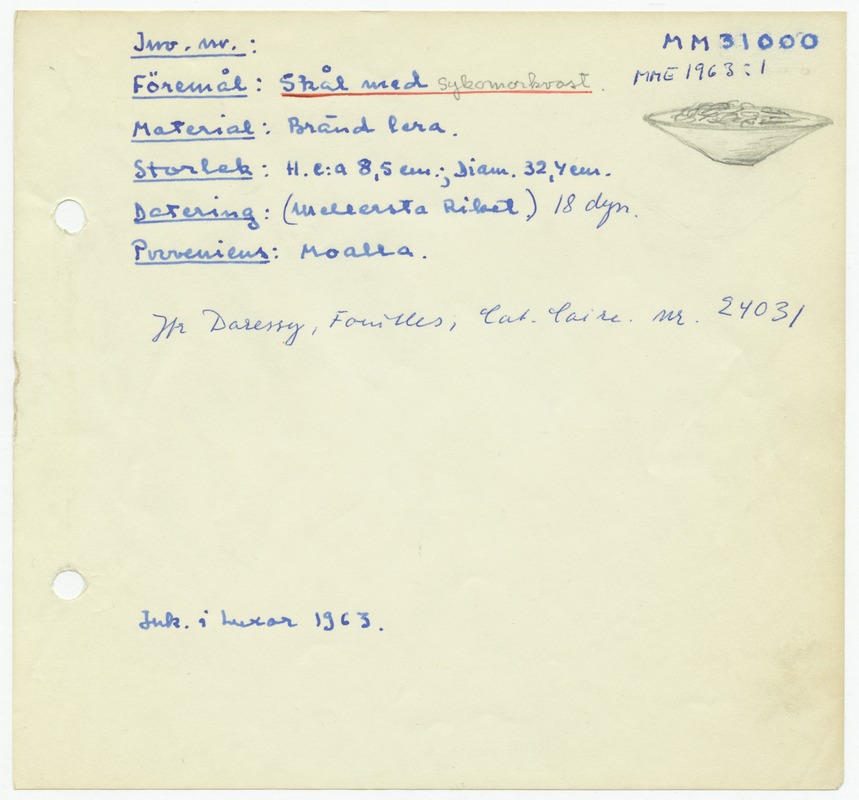 Inv. nr.:
MM 31000
MME 1963:1
Föremål: Skål med sykomorkvast.
Material: Bränd lera.
Storlek: H. c:a 8,5 cm.; Diam. 32,4 cm.
Datering: (Mellersta Riket.) 18 dyn.
Proveniens: Moalla.
Jfr Daressy, Fouilles, Cat. Caire. nr. 24031
Ink. i Luxor 1963.